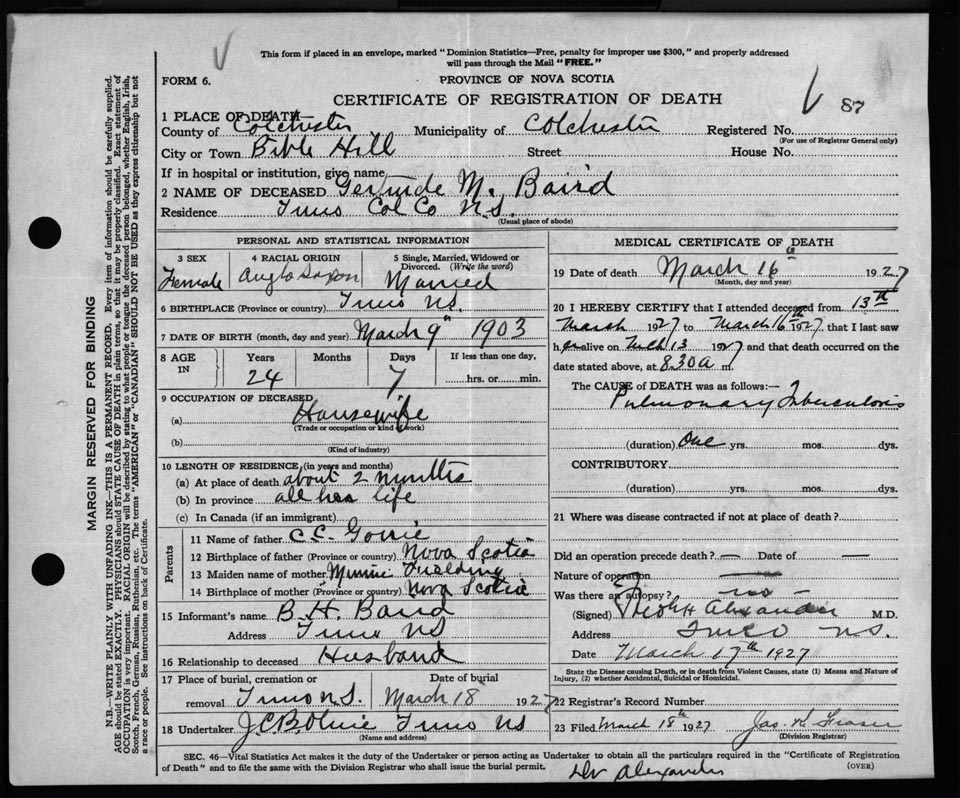 This form if placed in an envelope, marked "Dominion Statistics—Free, penalty for improper use $300," and properly addressed
will pass through the Mail "FREE."
FORM 6.
PROVINCE OF NOVA SCOTIA
CERTIFICATE OF REGISTRATION OF DEATH
87
1 PLACE OF DEATH—
County of Colchester Municipality of Colchester Registered No.
(For use of Registrar General only)
City or Town Bible Hill Street House No.
If in hospital or institution, give name
2 NAME OF DECEASED Gertrude M. Baird
Residence Truro Col Co N.S.
(Usual place of abode)
PERSONAL AND STATISTICAL INFORMATION
3 SEX 4 RACIAL ORIGIN 5 Single, Married, Widowed or
Divorced. (Write the word)
Female Anglo Saxon Married
6 BIRTHPLACE (Province or country) Truro NS.
7 DATE OF BIRTH (month, day and year) March 9th 1903
8 AGE IN Years Months Days If less than one day,
24 7 hrs. or min.
9 OCCUPATION OF DECEASED
(a) Housewife
(Trade or occupation or kind of work)
(b)
(Kind of industry)
10 LENGTH OF RESIDENCE (in years and months)
(a) At place of death about 2 months
(b) In province all her life
(c) In Canada (if an immigrant)
Parents
11 Name of father C.C. Gorrie
12 Birthplace of father (Province or country) Nova Scotia
13 Maiden name of mother Minnie Fielding
14 Birthplace of mother (Province or country) Nova Scotia
15 Informant's name B. H. Baird
Address Truro NS
16 Relationship to deceased Husband
17 Place of burial, cremation or Date of burial
removal Truro N.S. March 18 1927
18 Undertaker J.C.B. Truro NS
(Name and address)
MEDICAL CERTIFICATE OF DEATH
19 Date of death March 16th 1927
(Month, day and year)
20 I HEREBY CERTIFY that I attended deceased from 13th
March 1927 to March 16th 1927 that I last saw
her alive on 13 1927 and that death occurred on the
date stated above, at 8.30 a m.
The CAUSE of DEATH was as follows:—
Pulmonary Tuberculosis
(duration) One yrs. mos. dys.
CONTRIBUTORY
(duration) yrs. mos. dys.
21 Where was disease contracted if not at place of death?
Did an operation precede death? — Date of —
Nature of operation —
Was there an autopsy? — no —
(Signed) Alexander M.D.
Address Truro NS.
Date March 17th 1927
State the Disease causing Death, or in death from Violent Causes, state (1) Means and Nature of
Injury, (2) whether Accidental, Suicidal or Homicidal.
22 Registrar's Record Number
23 Filed March 18th 1927 Jas. K. Fraser
(Division Registrar)
SEC. 46—Vital Statistics Act makes it the duty of the Undertaker or person acting as Undertaker to obtain all the particulars required in the "Certificate of Registration
of Death" and to file the same with the Division Registrar who shall issue the burial permit.
(OVER)
Dr Alexander
MARGIN RESERVED FOR BINDING
N.B.—WRITE PLAINLY WITH UNFADING INK—THIS IS A PERMANENT RECORD. Every item of information should be carefully supplied.
AGE should be stated EXACTLY. PHYSICIANS should STATE CAUSE OF DEATH in plain terms, so that it may be properly classified. Exact statement of
OCCUPATION is very important. RACIAL ORIGIN will be described by stating to what people or tongue the deceased person belonged, whether English, Irish,
Scotch, French, German, Russian, Ruthenian, etc. The terms "AMERICAN" or "CANADIAN" SHOULD NOT BE USED as they express citizenship but not
a race or people. See instructions on back of Certificate.